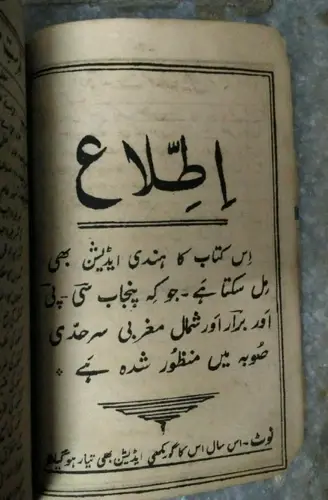 اِطِّلاع
اِس کتاب کا ہندی ایڈیشن بھی
مِل سکتا ہے۔ جو کہ پنجاب سی۔ پی
اور برار اور شمال مغربی سرحدی
صُوبہ میں منظور شدہ ہے
نوٹ۔ اس سال اس کا گورمکھی ایڈیشن بھی تیار ہوگیا ہے